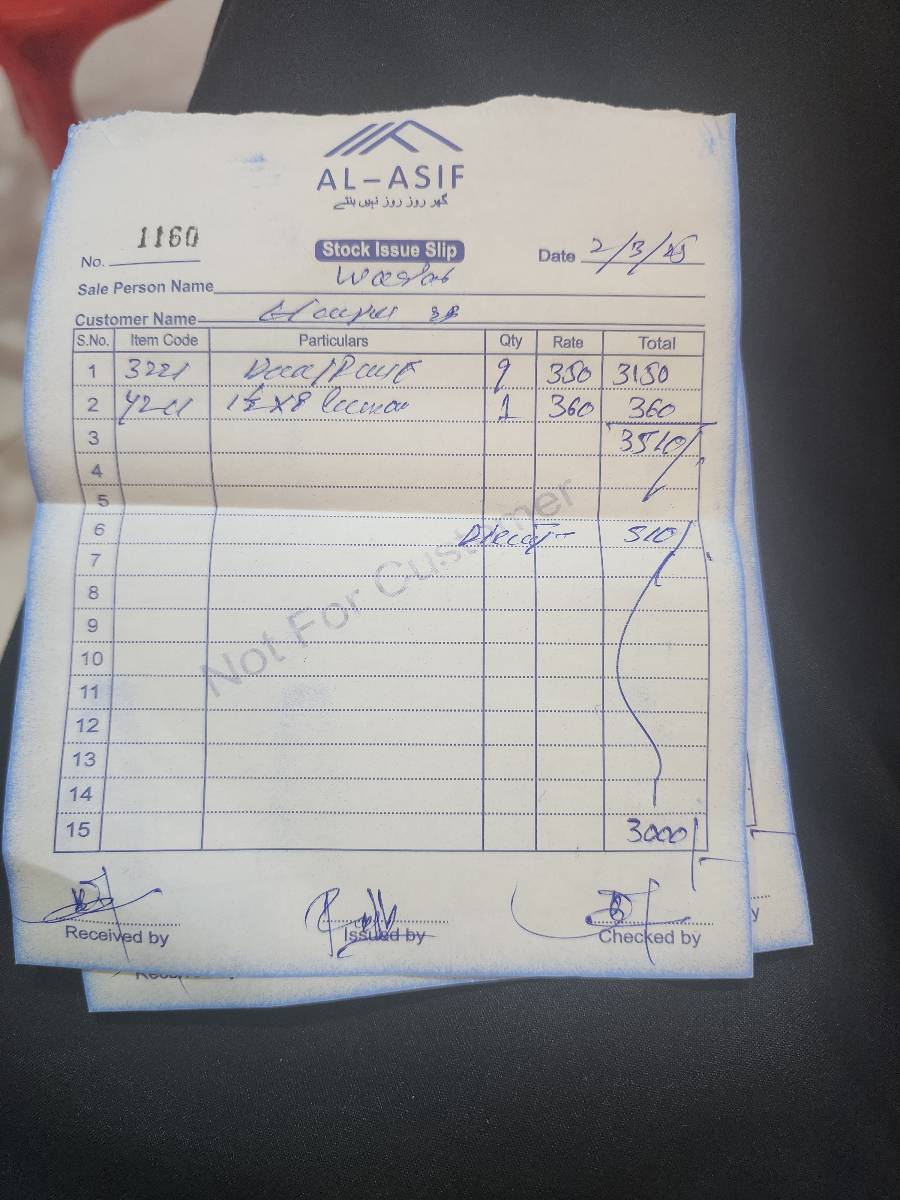 AL-ASIF
گھر روز روز نہیں بنتے
No. 1160
Stock Issue Slip
Date 2/3/25
Sale Person Name
Customer Name
S.No. Item Code Particulars Qty Rate Total
1 3221 9 350 3150
2 1½ x 8 1 360 360
3 3510/
4
5
6 510/
7
8
9
10
11
12
13
14
15 3000/
Not For Customer
Received by Issued by Checked by